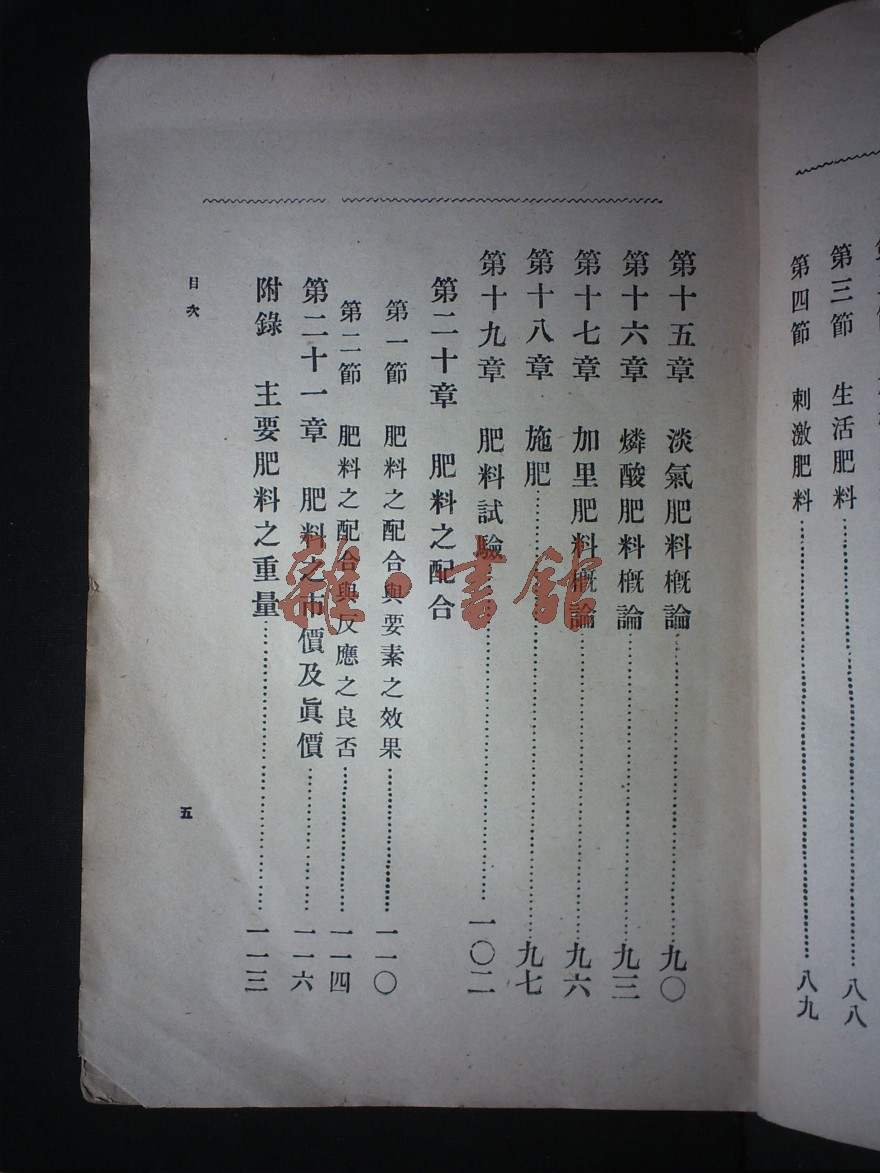 第三節 生活肥料 八八
第四節 刺激肥料 八九
第十五章 淡氣肥料概論 九〇
第十六章 燐酸肥料概論 九三
第十七章 加里肥料概論 九六
第十八章 施肥 九七
第十九章 肥料試驗 一〇二
第二十章 肥料之配合
第一節 肥料之配合與要素之效果 一一〇
第二節 肥料之配合與反應之良否 一一四
第二十一章 肥料之市價及眞價 一一六
附錄 主要肥料之重量 一一三
目次
五
雜·書館